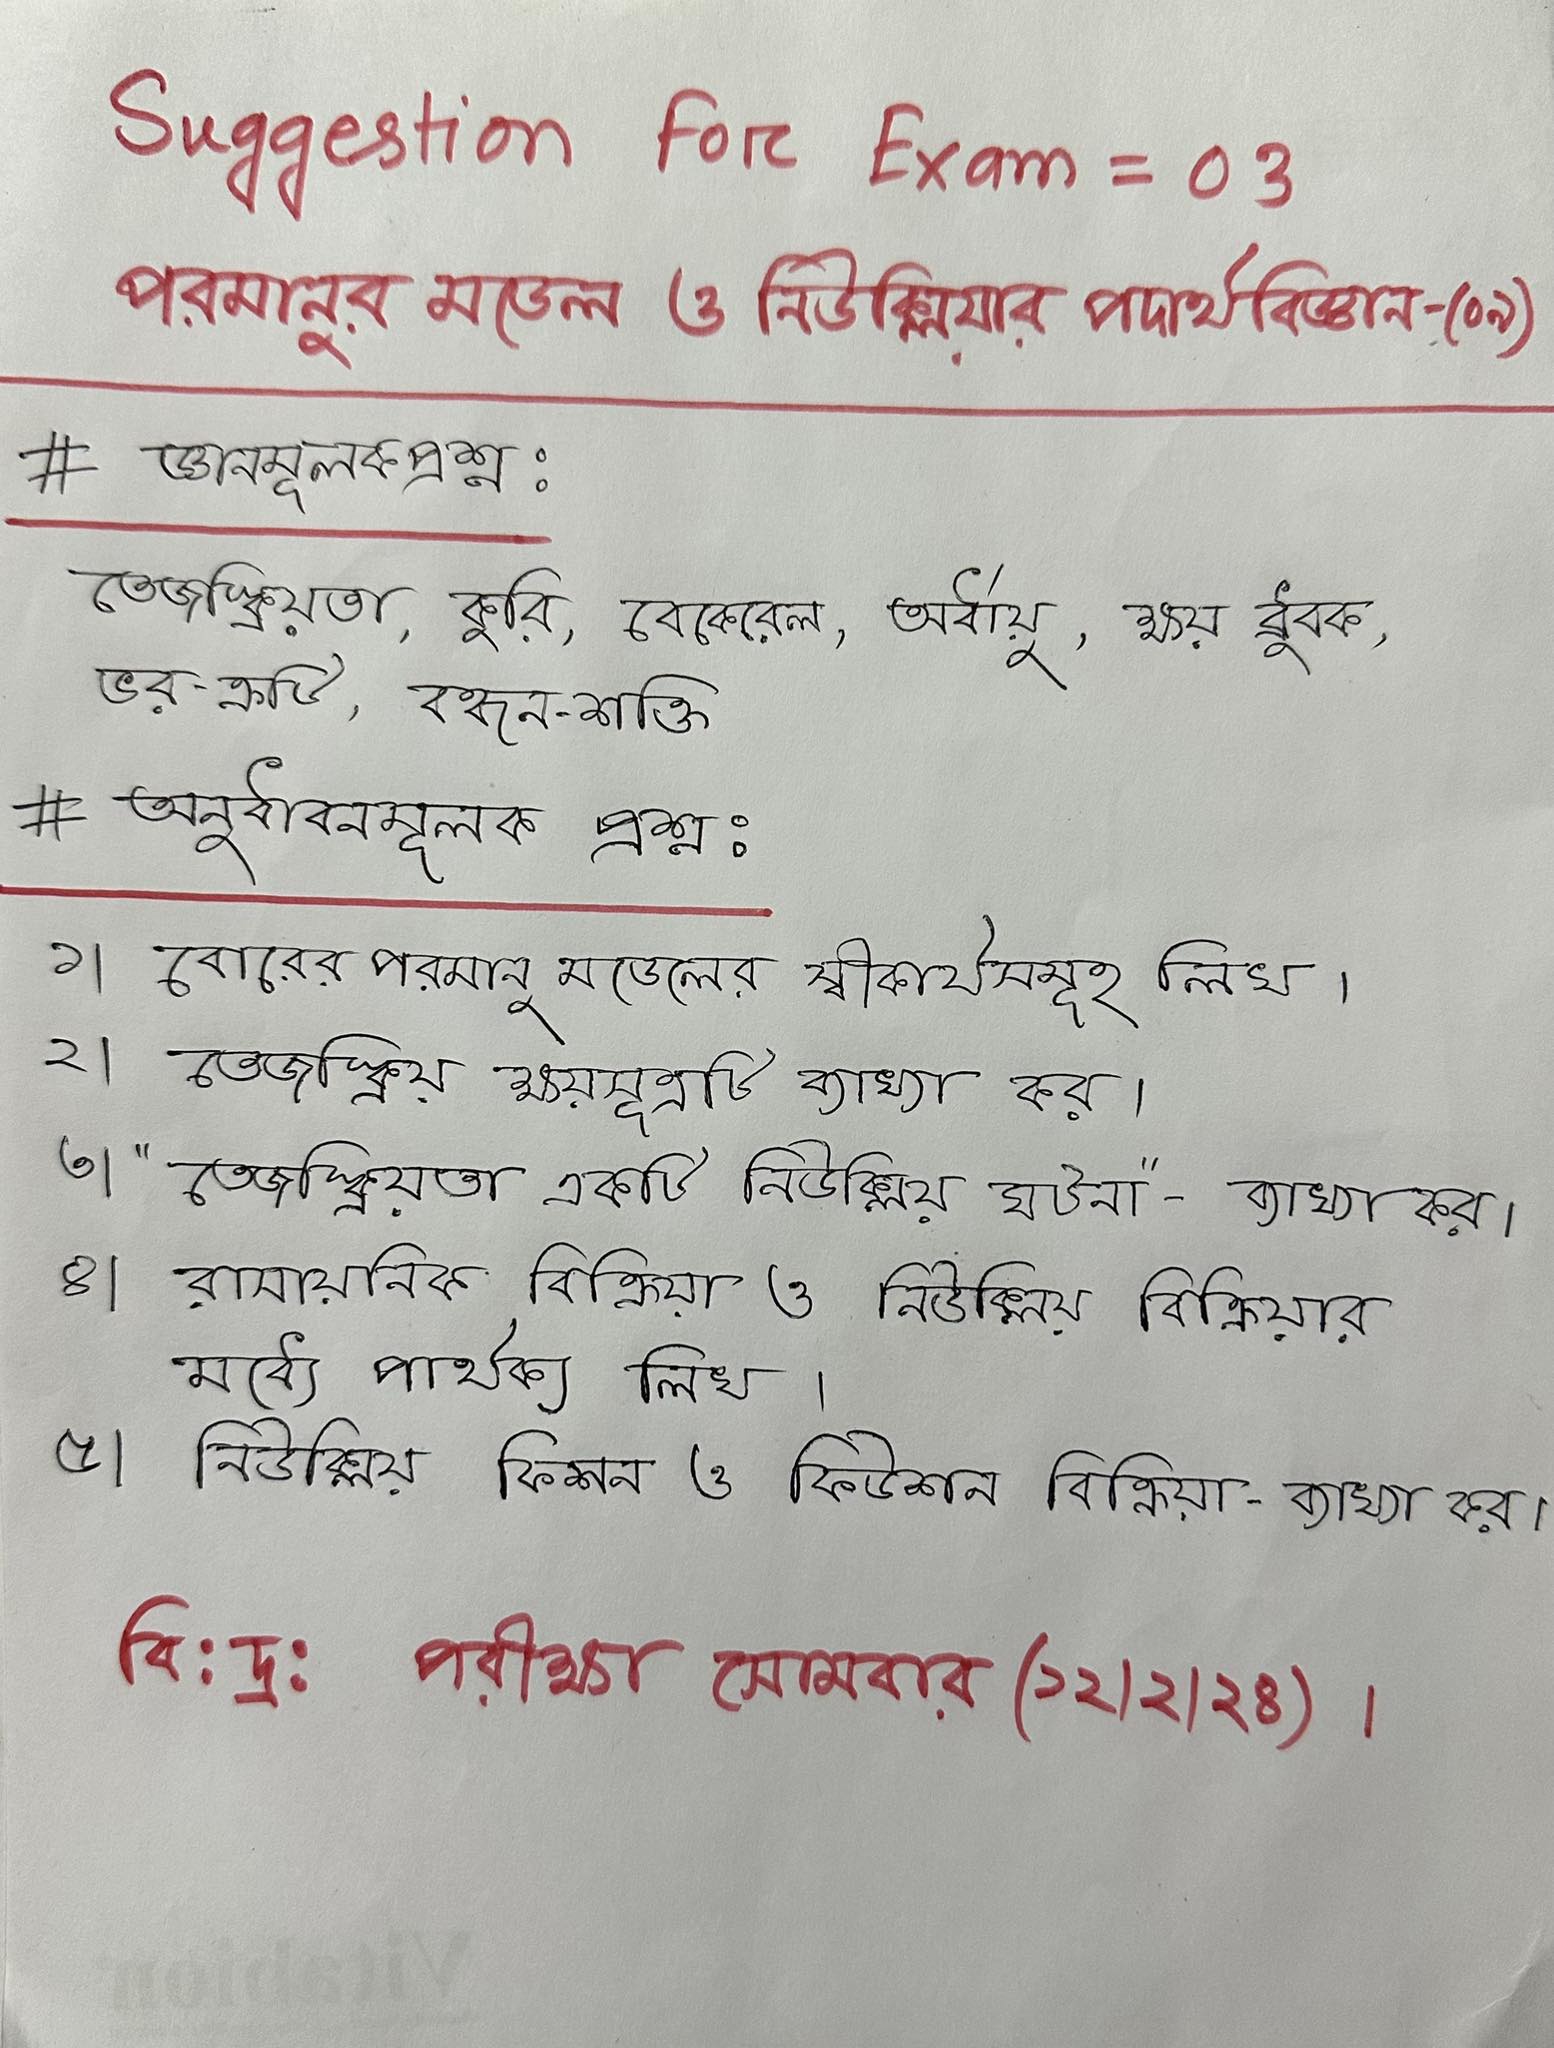 Suggestion For Exam = 03
পরমানুর মডেল ও নিউক্লিয়ার পদার্থবিজ্ঞান-(০৯)
# জ্ঞানমূলক প্রশ্ন :
তেজস্ক্রিয়তা, কুরি, বেকেরেল, অর্ধায়ু, ক্ষয় ধ্রুবক,
ভর-ত্রুটি, বন্ধন-শক্তি
# অনুধাবনমূলক প্রশ্ন :
১। বোরের পরমানু মডেলের স্বীকার্যসমূহ লিখ।
২। তেজস্ক্রিয় ক্ষয়সূত্রটি ব্যাখ্যা কর।
৩। "তেজস্ক্রিয়তা একটি নিউক্লিয় ঘটনা" - ব্যাখ্যা কর।
৪। রাসায়নিক বিক্রিয়া ও নিউক্লিয় বিক্রিয়ার
মধ্যে পার্থক্য লিখ।
৫। নিউক্লিয় ফিশন ও ফিউশন বিক্রিয়া - ব্যাখ্যা কর।
বি:দ্র: পরীক্ষা সোমবার (১২/২/২৪)।
Vitabion